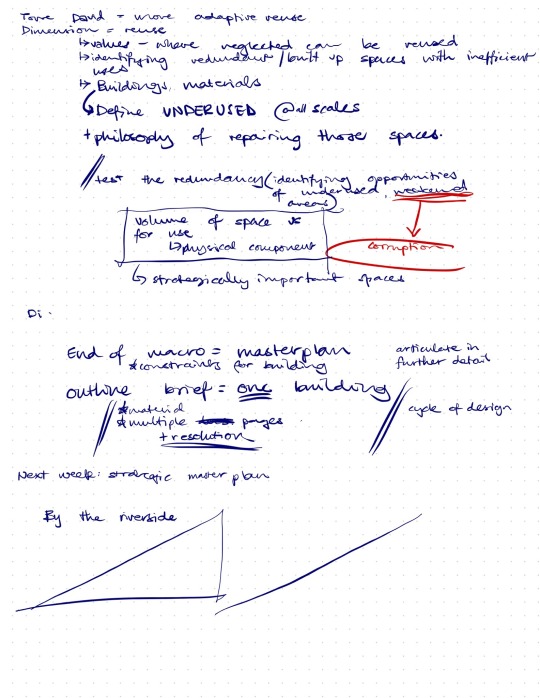 Torre David = more adaptive reuse
Dimension = reuse
↳ values - where neglected can be reused
↳ identifying redundant / built up spaces with inefficient
uses
↳ Buildings, materials
↳ Define UNDERUSED @all scales
+ philosophy of repairing those spaces.
// test the redundancy (identifying opportunities
of underused, weekend
areas)
volume of space vs
for use
↳ physical component
corruption
↳ strategically important spaces
Di.
End of macro = masterplan
*constraints for building
articulate in
further detail
outline brief = one building
*material
*multiple pages
+ resolution
cycle of design
Next week: strategic master plan
By the riverside